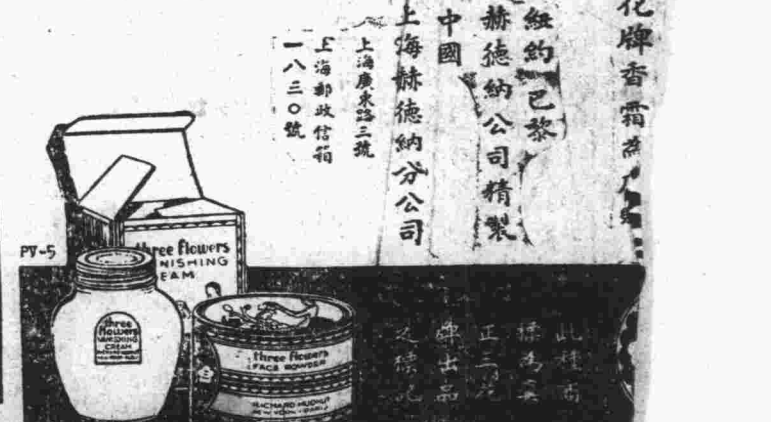 花牌香霜為
紐約巴黎
赫德納公司精製
中國
上海赫德納分公司
上海廣東路三號
上海郵政信箱
一八三〇號
PV-5
three flowers
VANISHING
CREAM
three
flowers
VANISHING
CREAM
three flowers
FACE POWDER
RICHARD HUDNUT
NEW YORK PARIS
此種商
標為真
正三花
牌出品
之標記